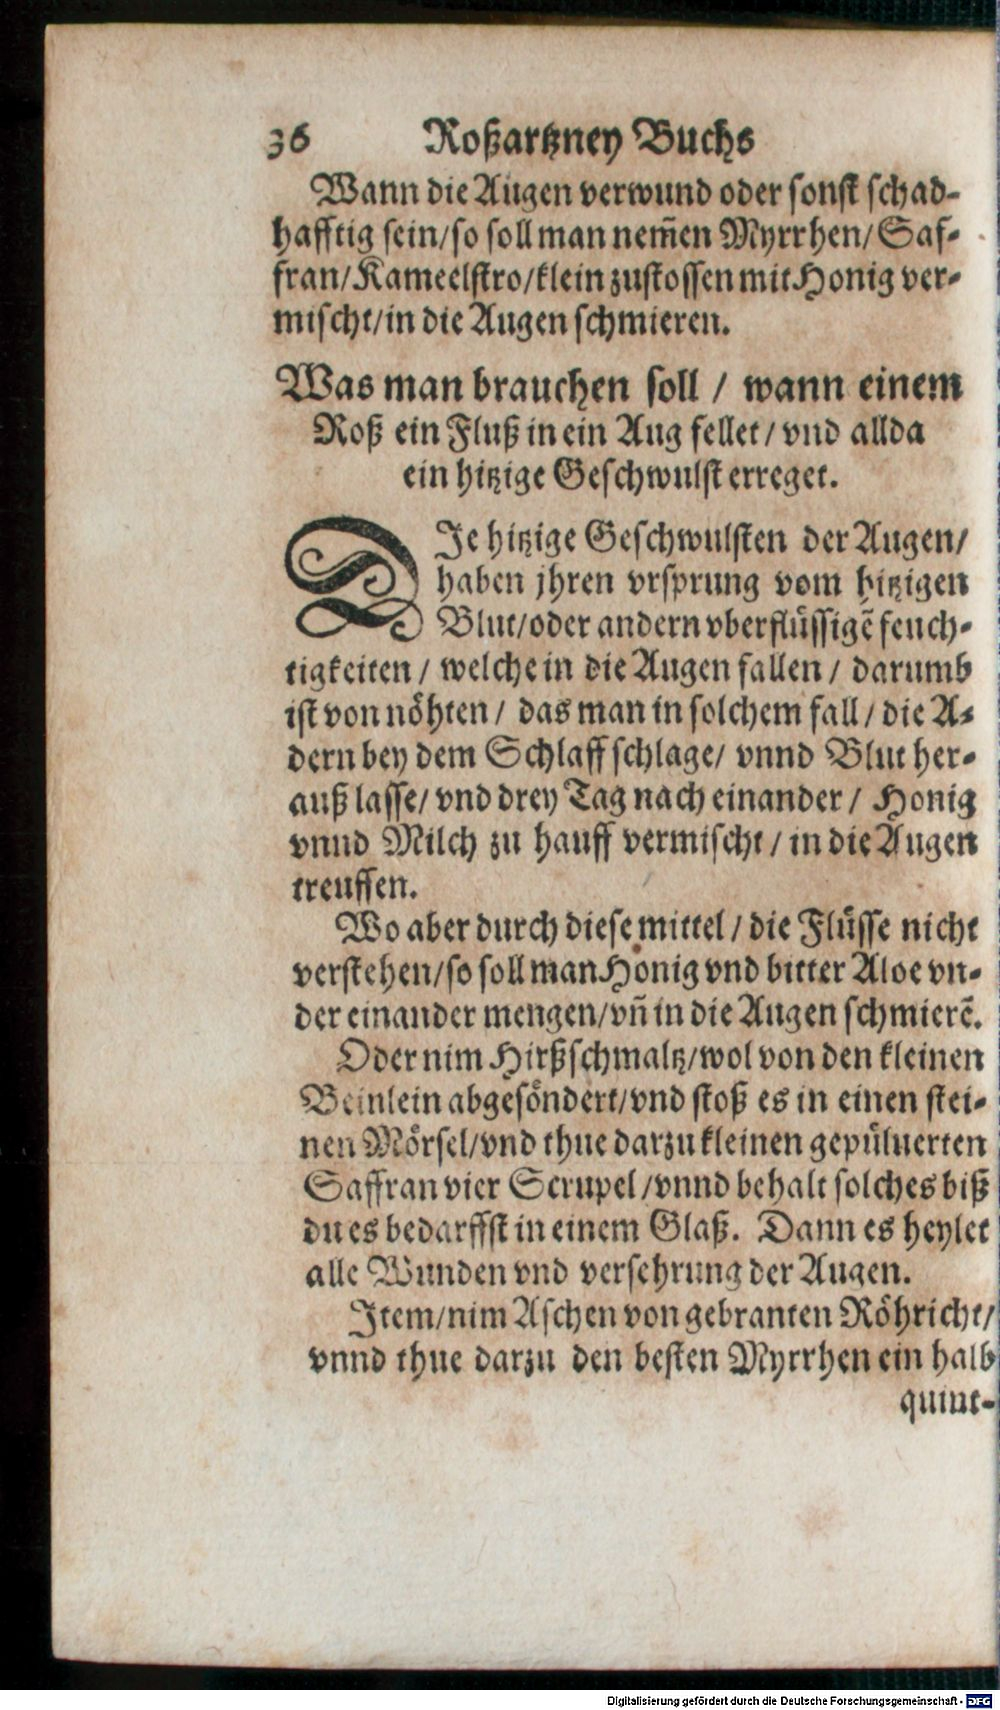 36 Roßartzney Buchs
Wann die Augen verwund oder sonst schad-
hafftig sein/so soll man nem̃en Myrrhen/Saf-
fran/Kameelstro/klein zustossen mit Honig ver-
mischt/in die Augen schmieren.
Was man brauchen soll / wann einem
Roß ein Fluß in ein Aug fellet/ vnd allda
ein hitzige Geschwulst erreget.
DIe hitzige Geschwulsten der Augen/
haben jhren vrsprung vom hitzigen
Blut/oder andern vberflüssigẽ feuch-
tigkeiten / welche in die Augen fallen / darumb
ist von nöhten / das man in solchem fall / die A-
dern bey dem Schlaff schlage/ vnnd Blut her-
auß lasse/ vnd drey Tag nach einander / Honig
vnnd Milch zu hauff vermischt / in die Augen
treuffen.
Wo aber durch diese mittel / die Flüsse nicht
verstehen/so soll man Honig vnd bitter Aloe vn-
der einander mengen/vñ in die Augen schmierẽ.
Oder nim Hirßschmaltz/wol von den kleinen
Beinlein abgesöndert/vnd stoß es in einen stei-
nen Mörsel/vnd thue darzu kleinen gepüluerten
Saffran vier Scrupel /vnnd behalt solches biß
du es bedarffst in einem Glaß. Dann es heylet
alle Wunden vnd versehrung der Augen.
Item/nim Aschen von gebranten Röhricht/
vnnd thue darzu den besten Myrrhen ein halb
quint-
Digitalisierung gefördert durch die Deutsche Forschungsgemeinschaft - DFG